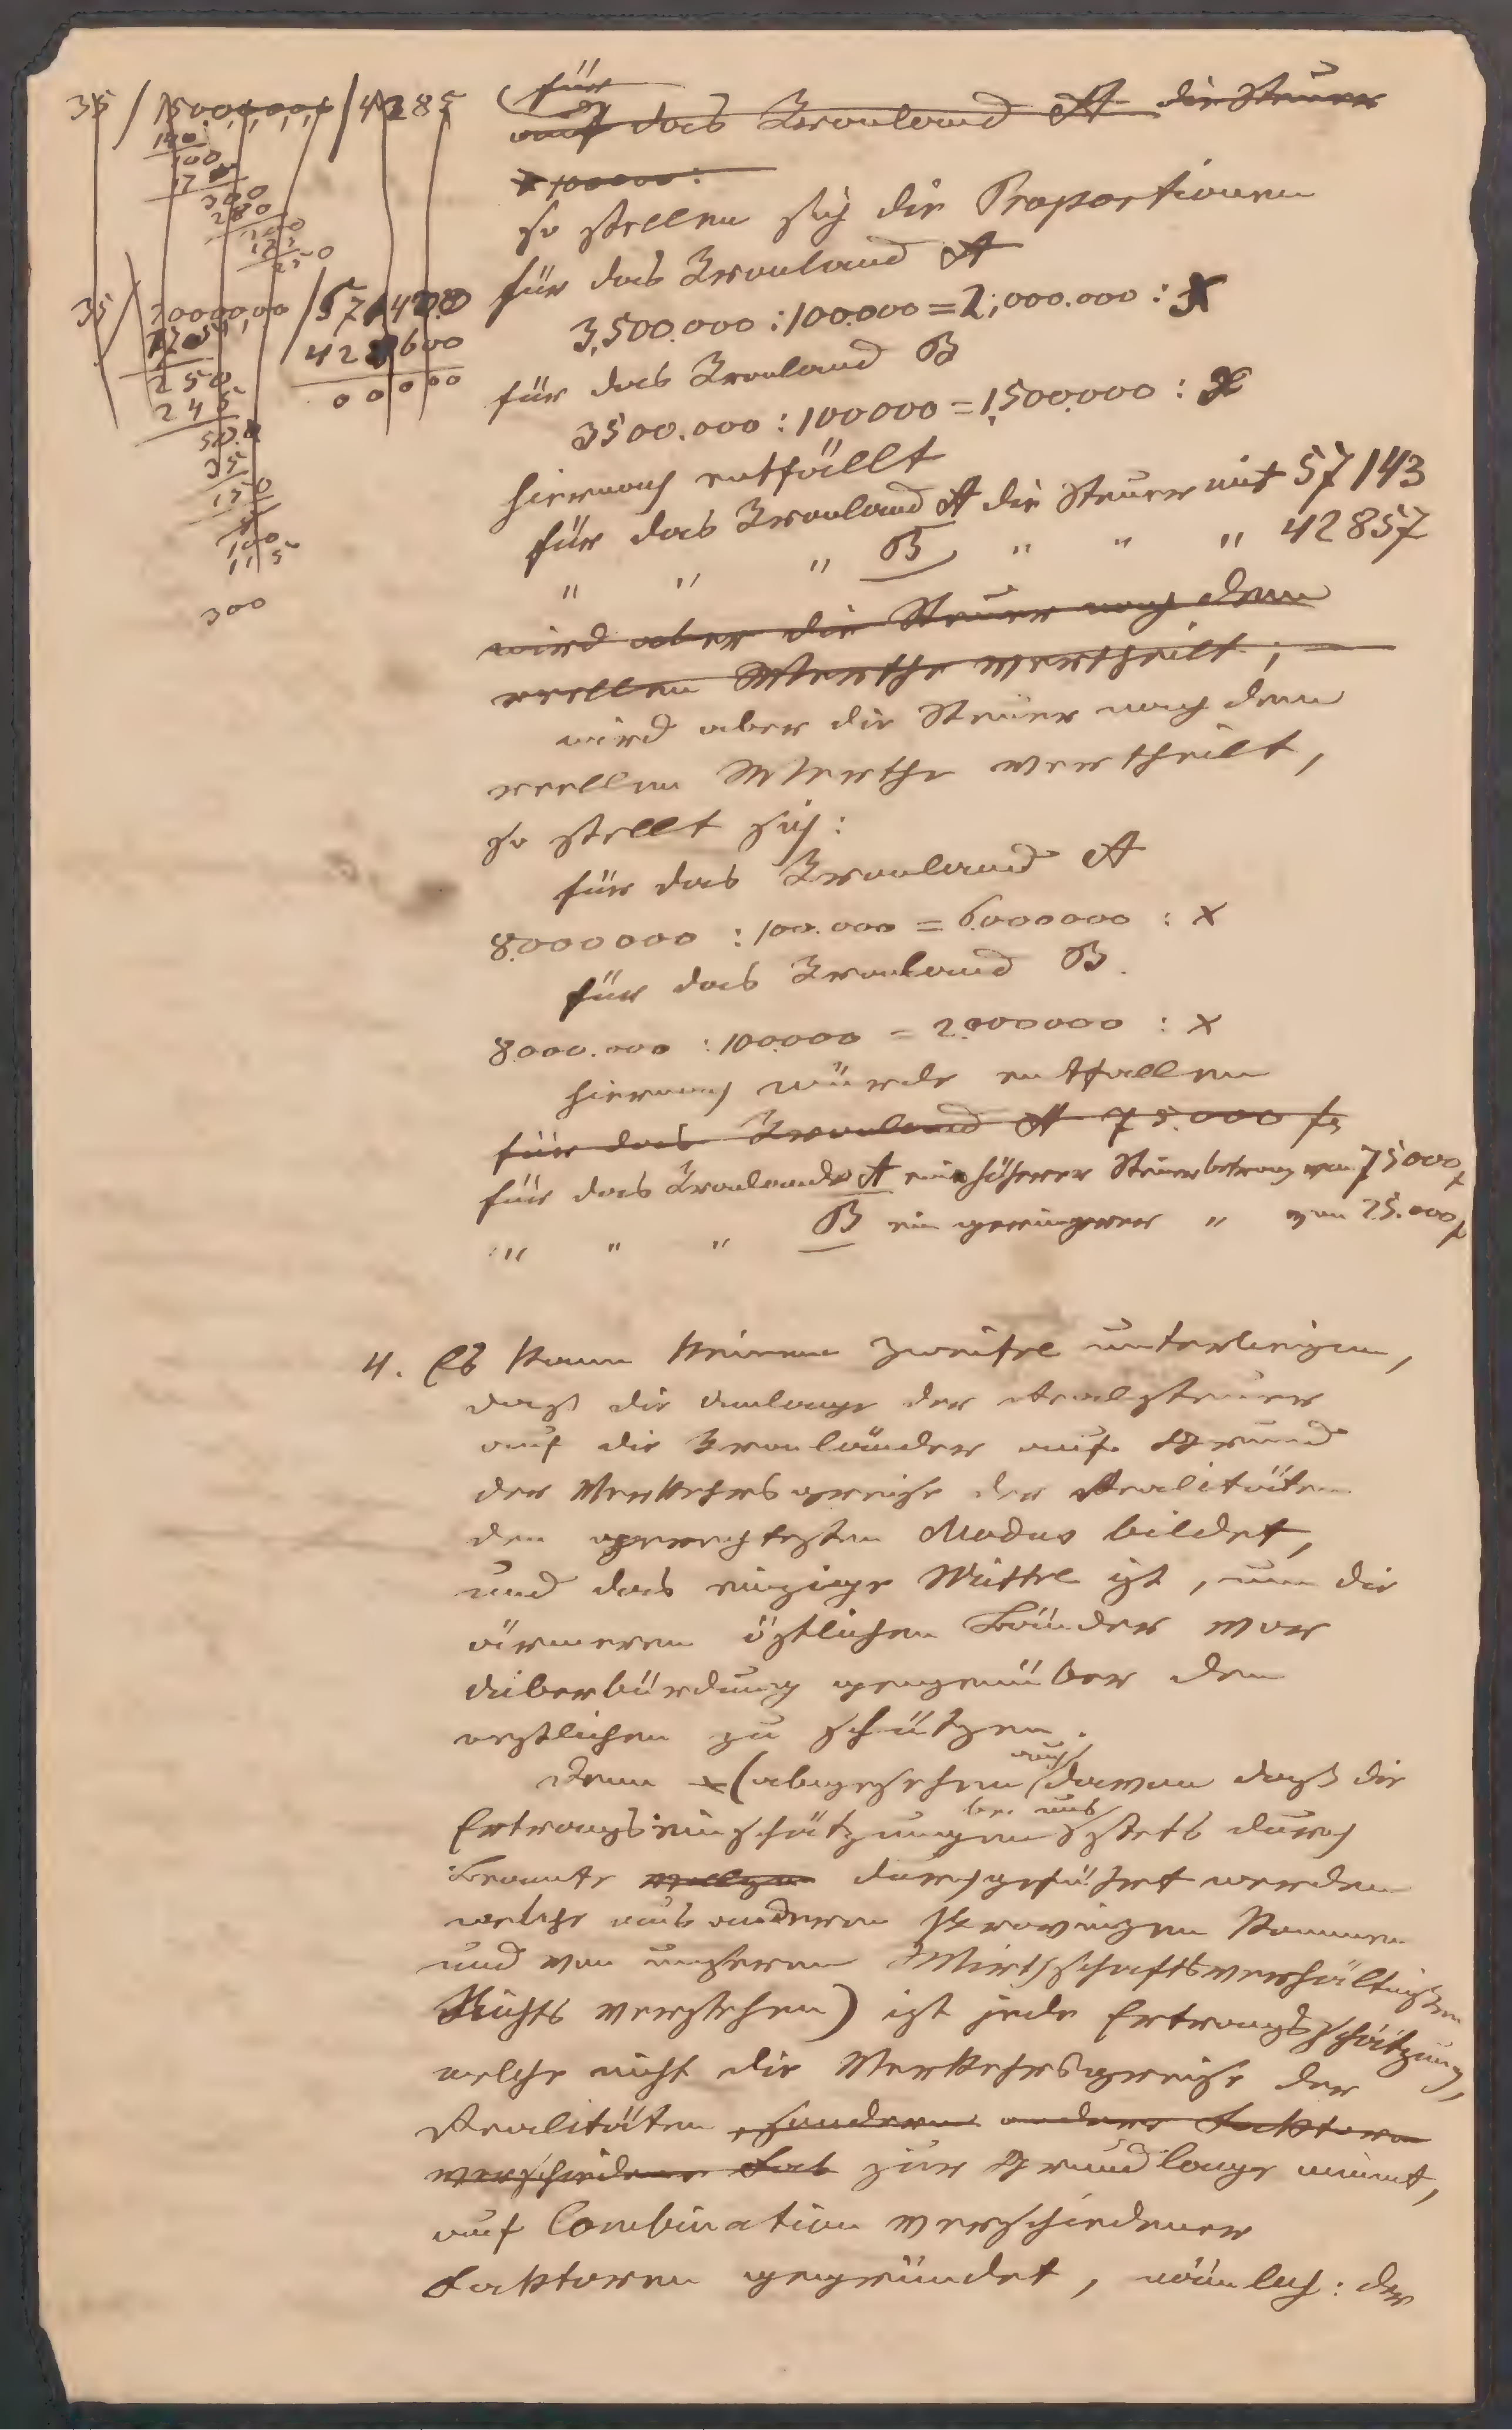 35 / 1500,0,0,0 / 4285
140
100
17
300
280
200
175
250
35 / 2000000,00 / 571428.0
175
428600
250
0 0 0 00
245
50.
35
150
100
115
300
für
auf das Kronland A die Steuer
x 100000:
so stellen sich die Proportionen
für das Kronland A
3,500.000 : 100.000 = 2,000.000 : X
für das Kronland B
3500.000 : 100000 = 1,500.000 : X
hiernach entfällt
für das Kronland A die Steuer mit 57143
" " " B " " " 42857
wird aber die Steuer nach dem
reellen Werthe vertheilt;
wird aber die Steuer nach dem
reellen Werthe vertheilt,
so stellt sich:
für das Kronland A
8.000000 : 100.000 = 6.000000 : X
für das Kronland B.
8.000.000 : 100.000 = 2.000000 : X
hiernach würde entfallen
für das Kronland A 75.000 f
für das Kronland A ein höherer Steuerbetrag von 75000 f
" " " B ein geringerer " von 25.000 f
4. Es kann keinem Zweifel unterliegen,
daß die Umlage der Realsteuer
auf die Kronländer auf Grund
der Verkehrspreise der Realitäten
den gerechtesten Modus bildet,
und das einzige Mittel ist, um die
ärmeren östlichen Länder vor
Überbürdung gegenüber den
westlichen zu schützen.
Denn (abgesehen auch davon daß die
Ertragseinschätzungen bei uns stets durch
Beamte durchgeführt werden
welche aus anderen Provinzen kommen
und von unseren Wirthschaftsverhältnißen
Nichts verstehen) ist jede Ertragsschätzung,
welche nicht die Verkehrspreise der
Realitäten sondern andere Faktoren
verschiedene Fak zur Grundlage nimmt,
auf Combination verschiedener
Faktoren gegründet, nämlich: der